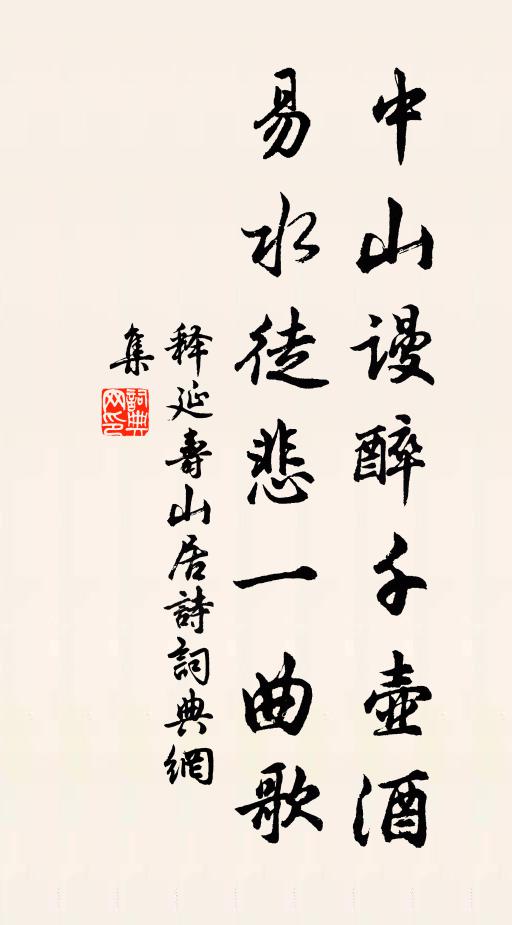 中山谩醉千壶酒
易水徒悲一曲歌
释延壽山居詩詞典網
集
詞典
网印